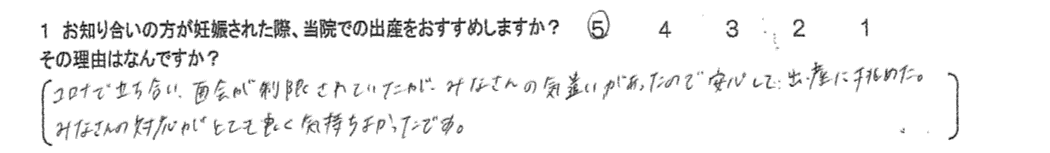 1 お知り合いの方が妊娠された際、当院での出産をおすすめしますか？ 5 4 3 2 1
その理由はなんですか？
コロナで立ち合い、面会が制限されていたが、みなさんの気遣いがあったので安心して出産に挑めた。
みなさんの対応がとても良く気持ちよかったです。